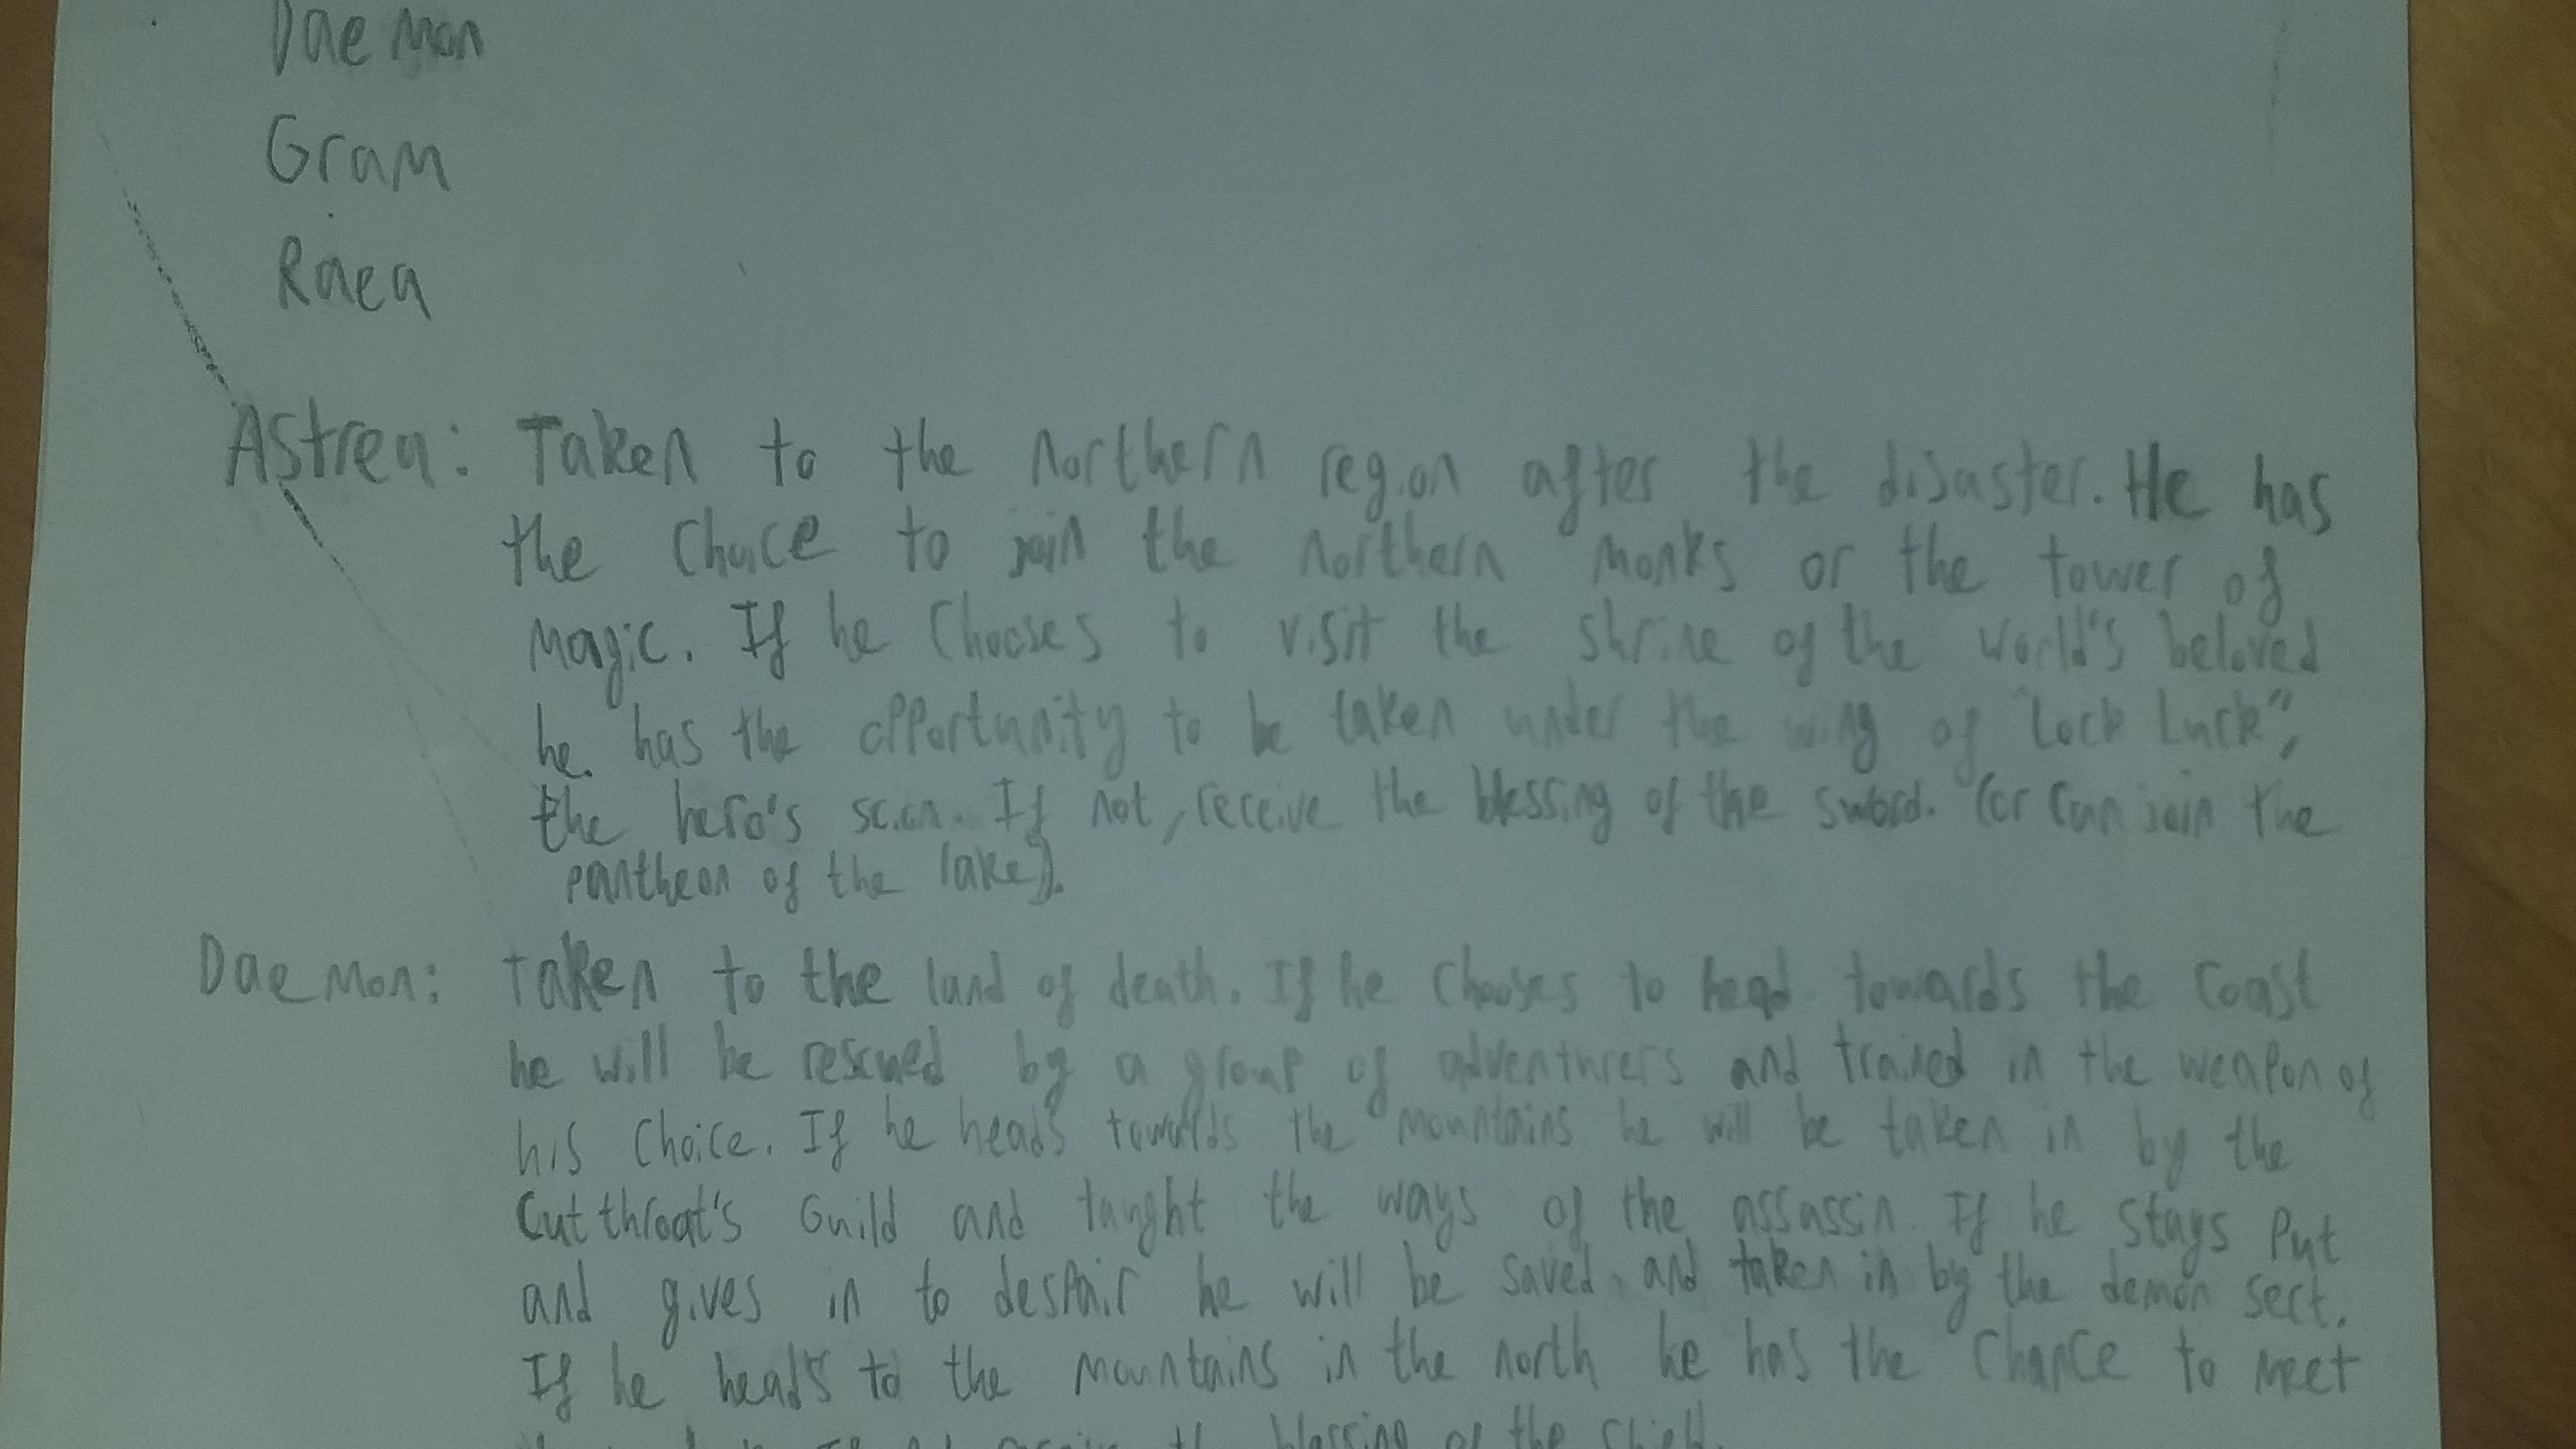 Daemon
Gram
Raea
Astrea: Taken to the northern region after the disaster. He has
the choice to join the northern monks or the tower of
magic. If he chooses to visit the shrine of the world's beloved
he has the opportunity to be taken under the wing of "Lock Luck",
the hero's scion. If not, receive the blessing of the sword. (or can join the
pantheon of the lake).
Daemon: taken to the land of death. If he chooses to head towards the coast
he will be rescued by a group of adventurers and trained in the weapon of
his choice. If he heads towards the mountains he will be taken in by the
Cutthroat's Guild and taught the ways of the assassin. If he stays put
and gives in to despair he will be saved and taken in by the demon sect.
If he heads to the mountains in the north he has the chance to meet
blessing of the shield.